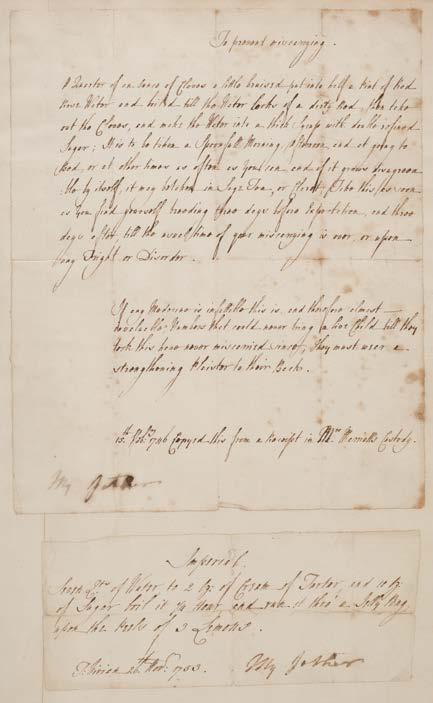 To prevent miscarrying.
A Quarter of an ounce of Cloves a little bruised put into half a Pint of Red
Rose Water and boil'd till the Water looks of a dirty Red, then take
out the Cloves, and make the Water into a thick Syrup with double refined
Sugar; It is to be taken a Spoonfull Morning, Afternoon, and at going to
Bed, or at other times as often as you can, and if it grows disagreea
ble by itself, it may be taken in Sage Tea, or Claret. Take this as soon
as you find yourself breeding three days before Expectation, and three
days after till the usual time of your miscarrying is over, or upon
any Fright or Disorder.
If any Medecine is infallible this is, and therefore almost
invaluable. Numbers that could never bring a live Child till they
took this have never miscarried since; They must wear a
strengthening Plaister to their Back.
15th. 1746 Copyed this from a Receipt in Mrs Custody.
My Father
Imperial.
Seven Qts. of Water to 2 Oz. of Cream of Tartar, and 10 Oz
of Sugar boil it 1/4 Hour, and run it thro' a Jelly Bag
upon the Peels of 3 Lemons.
26th Novr. 1753. My Father